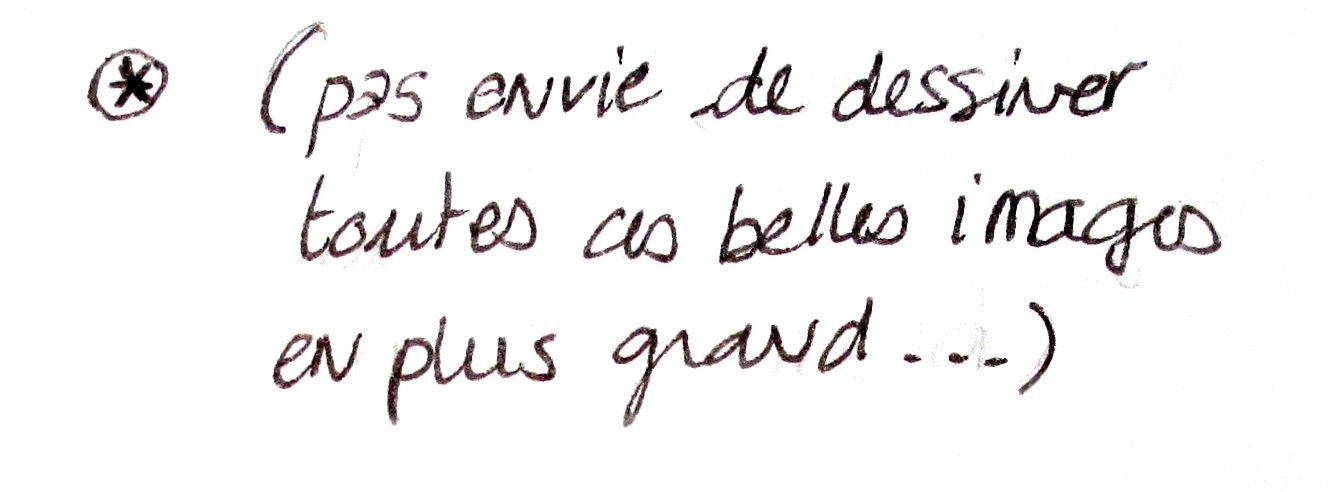 * (pas envie de dessiner
toutes ces belles images
en plus grand...)